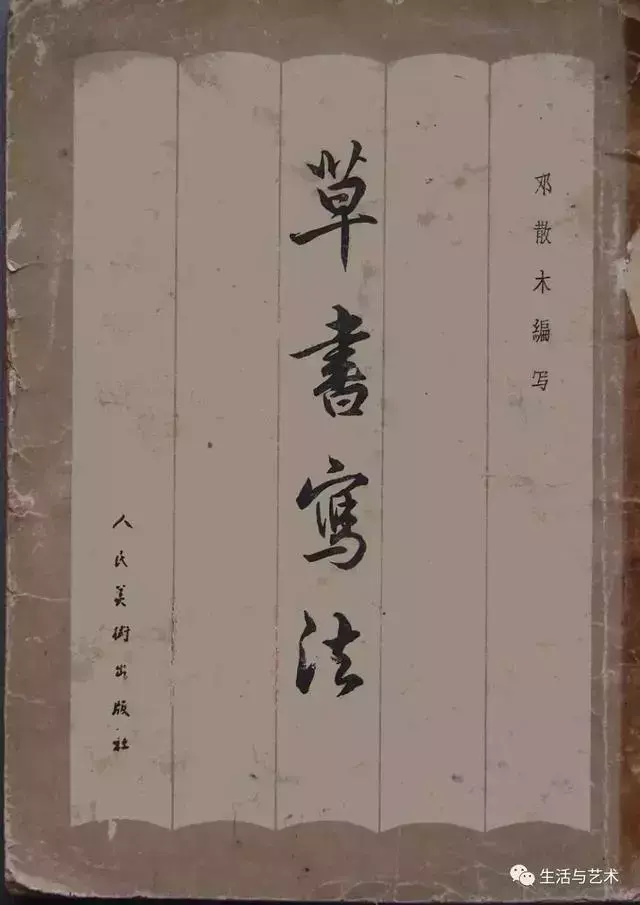 邓散木编写
草書寫法
人民美術出版社
生活与艺术